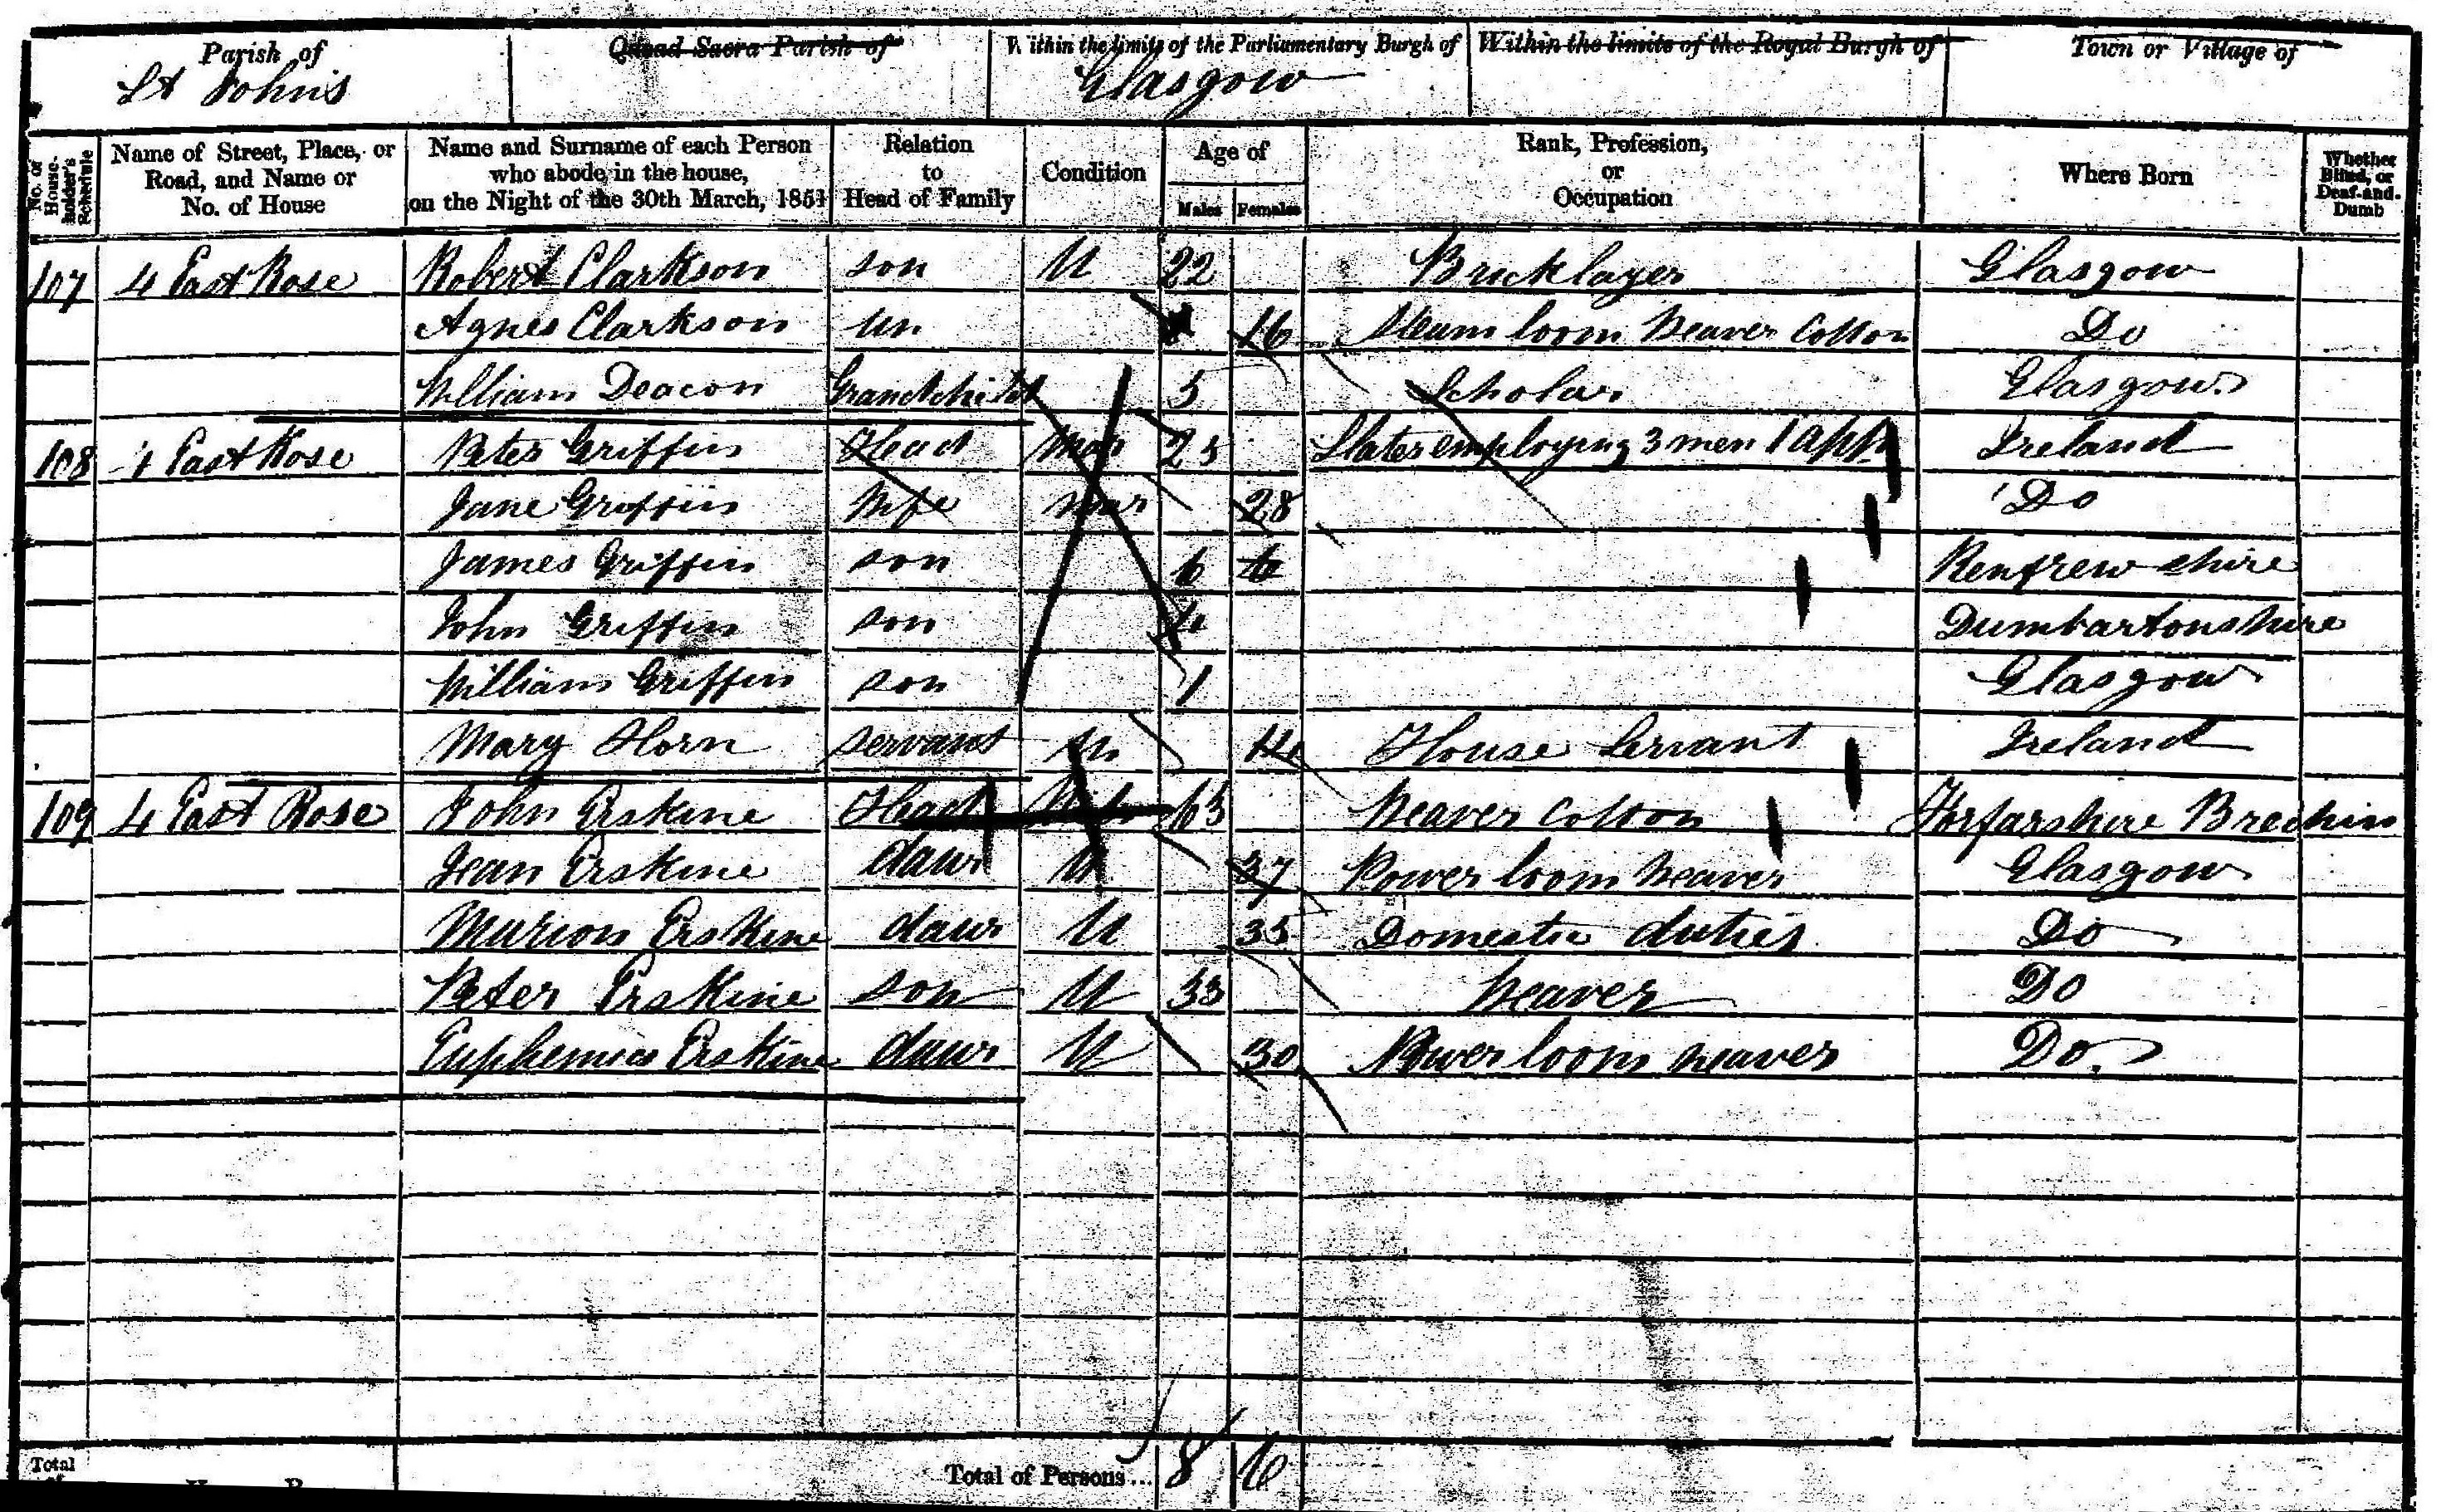 Parish of
St Johns
Quoad Sacra Parish of
Within the limits of the Parliamentary Burgh of
Glasgow
Within the limits of the Royal Burgh of
Town or Village of
No. of House-holder's Schedule
Name of Street, Place, or Road, and Name or No. of House
Name and Surname of each Person who abode in the house, on the Night of the 30th March, 1851
Relation to Head of Family
Condition
Age of
Males Females
Rank, Profession, or Occupation
Where Born
Whether Blind, or Deaf-and-Dumb
107 4 East Rose Robert Clarkson son U 22 Bricklayer Glasgow
Agnes Clarkson un 16 Steam loom Weaver Cotton Do
William Deacon Grandchild 5 Scholar Glasgow
108 4 East Rose Peter Griffin Head Mar 25 Slater employing 3 men 1 app Ireland
Jane Griffin Wife Mar 28 Do
James Griffin son 6 6 Renfrewshire
John Griffin son 4 Dumbartonshire
William Griffin son 1 Glasgow
Mary Horn servant U 14 House Servant Ireland
109 4 East Rose John Erskine Head 63 Weaver Cotton Forfarshire Brechin
Jean Erskine daur U 37 Power loom weaver Glasgow
Marion Erskine daur U 35 Domestic duties Do
Peter Erskine son U 33 Weaver Do
Euphemia Erskine daur U 30 Power loom weaver Do
Total of
Total of Persons... 8 6